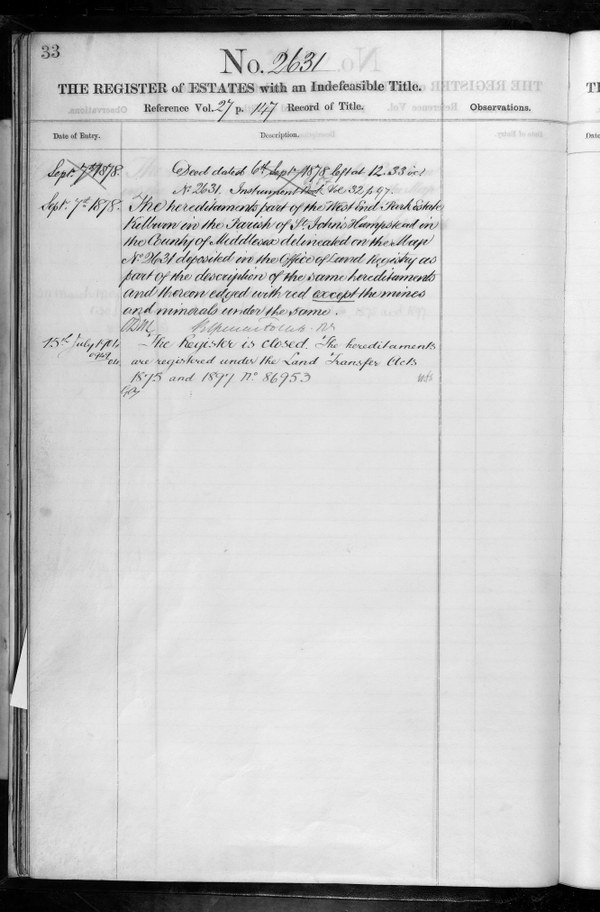 33
No. 2631
THE REGISTER of ESTATES with an Indefeasible Title.
Reference Vol. 27 p. 147 Record of Title.
Observations.
Date of Entry.
Description.
Sept. 7th 1878.
Deed dated 6th Sept. 1878 left at 12.33 is
No 2631. Instrument Book Vol 32 p 97.
Sept. 7th 1878.
The hereditaments part of the West End Park Estate
Kilburn in the Parish of St. John's Hampstead in
the County of Middlesex delineated on the Map
No 2631 deposited in the Office of Land Registry as
part of the description of the same hereditaments
and thereon edged with red except the mines
and minerals under the same.
15th July 1904
The Register is closed. The hereditaments
are registered under the Land Transfer Acts
1875 and 1897 No. 86953